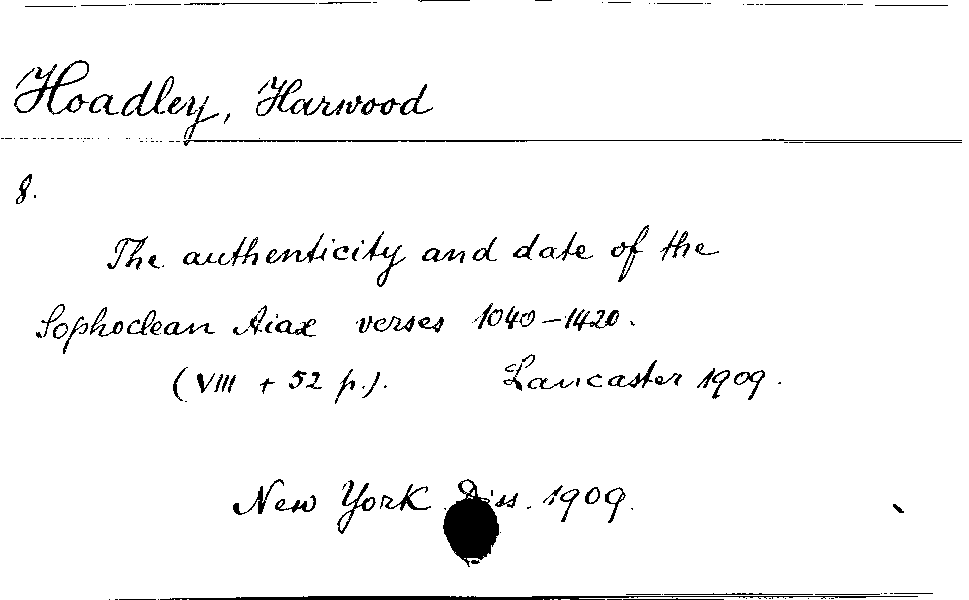 Hoadley, Harwood
8.
The authenticity and date of the
Sophoclean Aiax verses 1040-1420.
(VIII + 52 p.). Lancaster 1909.
New York Diss. 1909.